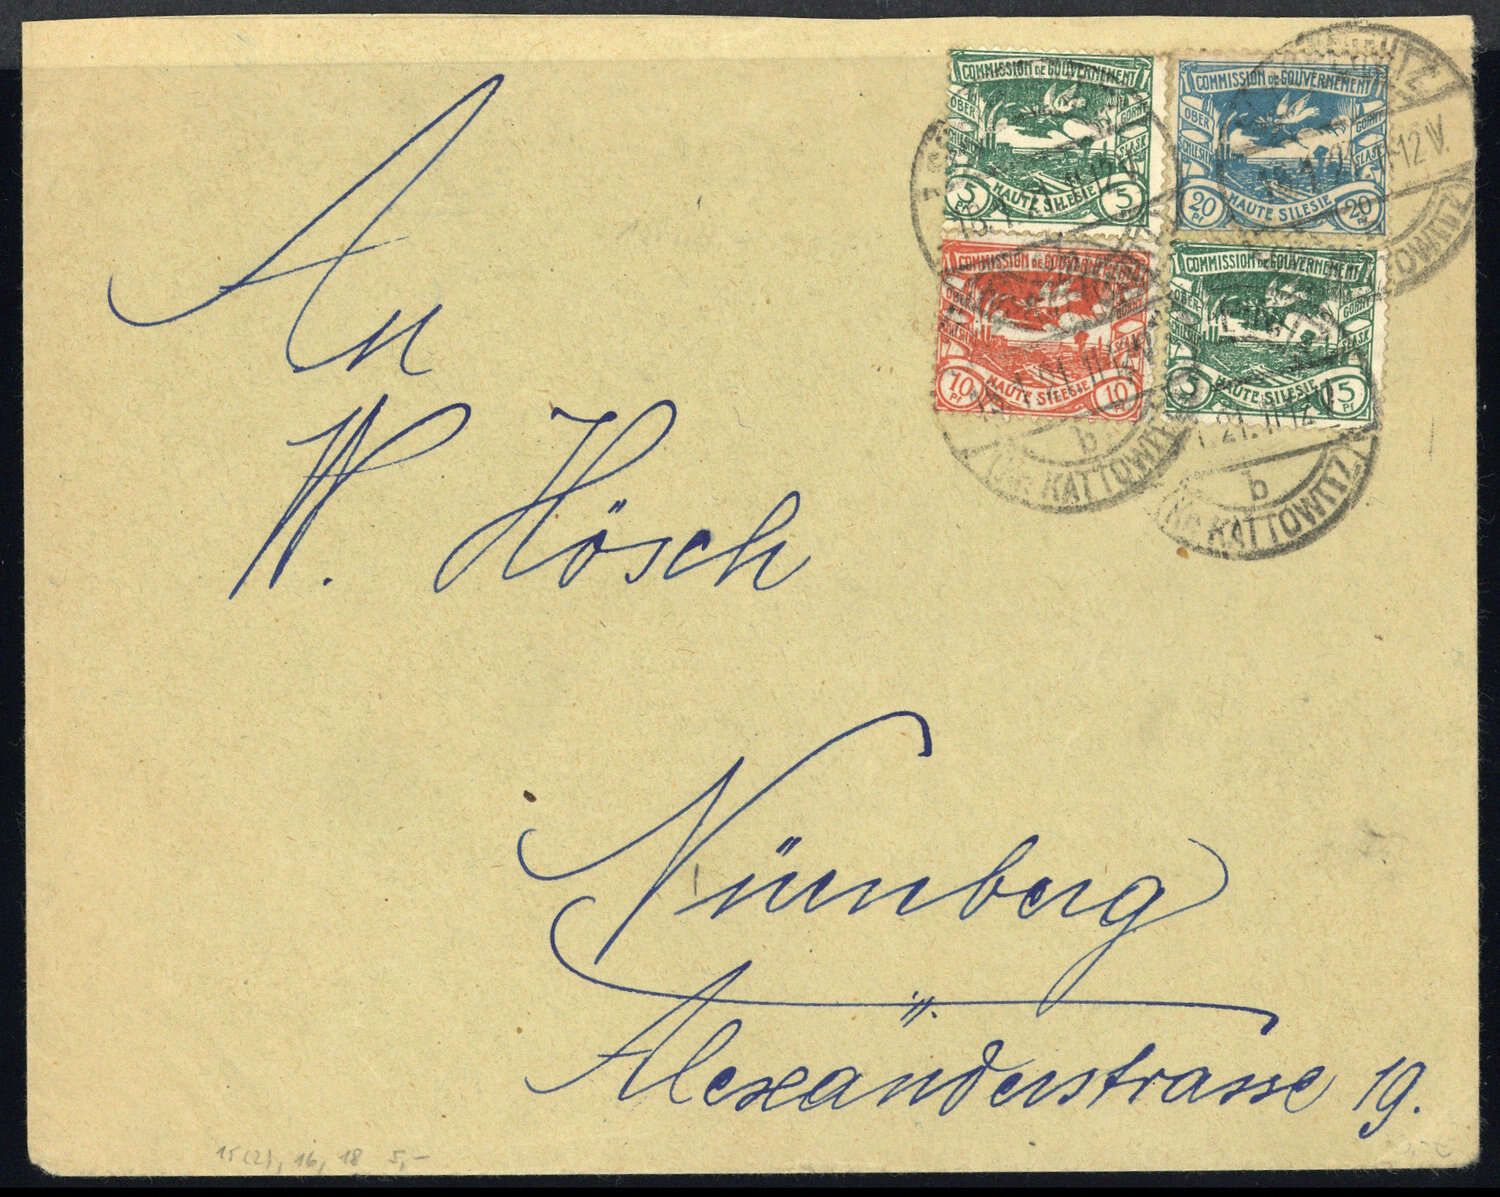 COMMISSION DE GOUVERNEMENT
OBER SCHLESIEN
GÓRNY ŚLĄSK
5 Pf HAUTE SILESIE 5 Pf
COMMISSION DE GOUVERNEMENT
OBER SCHLESIEN
GÓRNY ŚLĄSK
20 Pf HAUTE SILESIE 20 Pf
COMMISSION DE GOUVERNEMENT
OBER
10 Pf HAUTE SILESIE 10 Pf
COMMISSION DE GOUVERNEMENT
OBER
GÓRNY ŚLĄSK
5 HAUTE SILESIE 5 Pf
21. 11-12 V.
b
(KR. KATTOWITZ)
b
(KR. KATTOWITZ)
An
W. Hösch
Nürnberg
Alexänderstrasse 19.
15(2), 16, 18 5,-